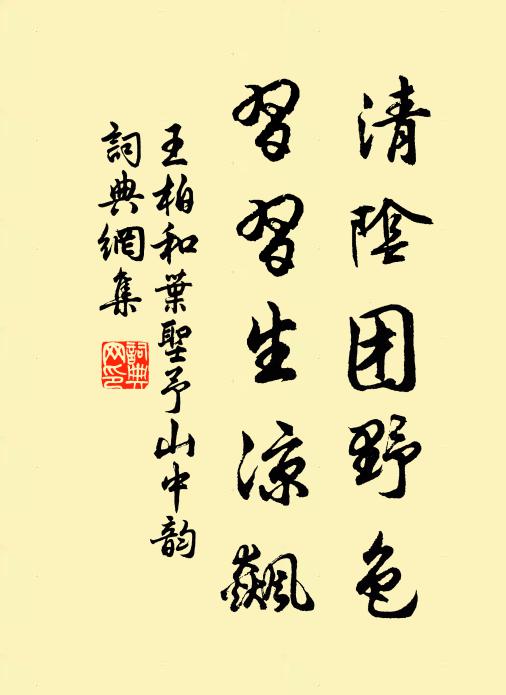 清陰团野色
習習生涼飆
王柏和葉聖予山中韵
詞典網集
詞典网印